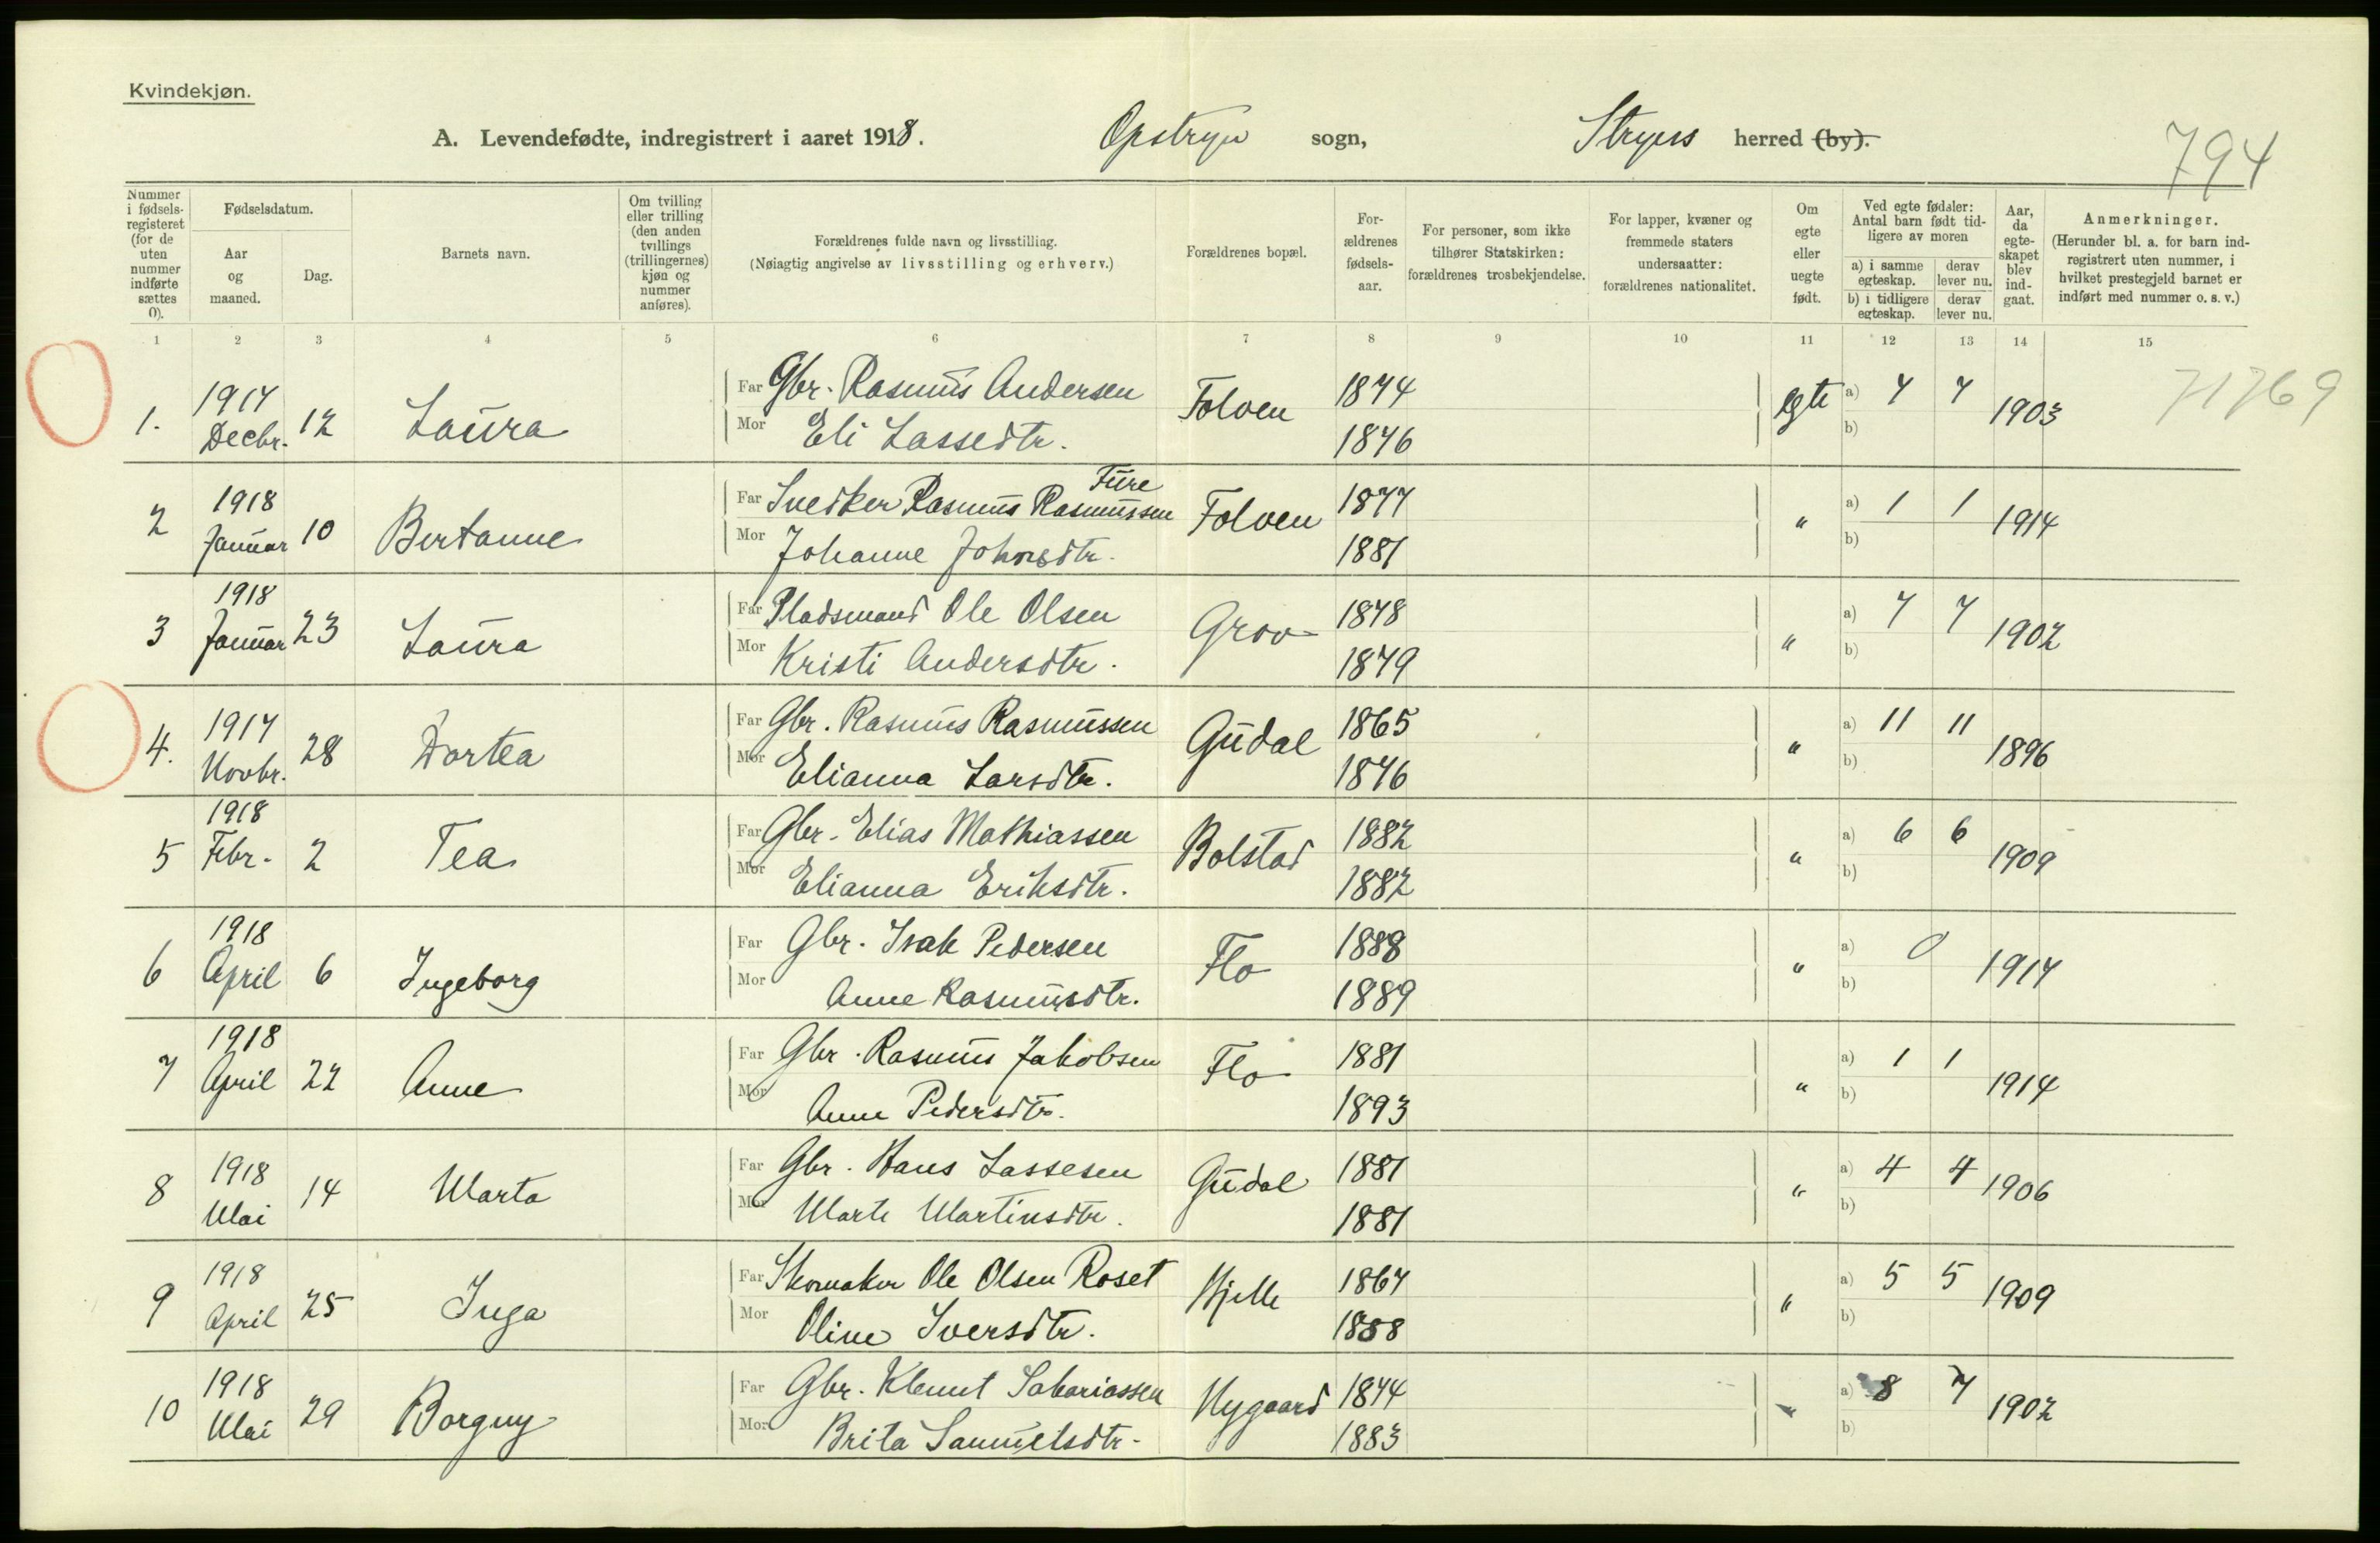 Kvindekjøn.
A. Levendefødte, indregistrert i aaret 1918. Opstryn sogn, Stryns herred (by).
794
Nummer i fødsels-registeret (for de uten nummer indførte sættes 0).
Fødselsdatum.
Aar og maaned.
Dag.
Barnets navn.
Om tvilling eller trilling (den anden tvillings (trillingernes) kjøn og nummer anføres).
Forældrenes fulde navn og livsstilling.
(Nøiagtig angivelse av livsstilling og erhverv.)
Forældrenes bopæl.
For-ældrenes fødsels-aar.
For personer, som ikke tilhører Statskirken: forældrenes trosbekjendelse.
For lapper, kvæner og fremmede staters undersaatter: forældrenes nationalitet.
Om egte eller uegte født.
Ved egte fødsler: Antal barn født tid-ligere av moren
a) i samme egteskap. derav lever nu.
b) i tidligere egteskap. derav lever nu.
Aar, da egte-skapet blev ind-gaat.
Anmerkninger.
(Herunder bl. a. for barn ind-registrert uten nummer, i hvilket prestegjeld barnet er indført med nummer o. s. v.)
1 2 3 4 5 6 7 8 9 10 11 12 13 14 15
1. 1917 Decbr. 12 Laura Far Gbr. Rasmus Andersen Folven 1874 egte a) 7 7 1903 71769
Mor Eli Lassedtr. 1876 b)
2 1918 Januar 10 Bertanne Far Snedker Rasmus Rasmussen Fure Folven 1877 " a) 1 1 1914
Mor Johanne Johnsdtr. 1881 b)
3 1918 Januar 23 Laura Far Pladsmand Ole Olsen Grov 1878 " a) 7 7 1902
Mor Kristi Andersdtr. 1879 b)
4. 1917 Novbr. 28 Dortea Far Gbr. Rasmus Rasmussen Gudal 1865 " a) 11 11 1896
Mor Elianna Larsdtr. 1876 b)
5 1918 Febr. 2 Tea Far Gbr. Elias Mathiassen Bolstad 1882 " a) 6 6 1909
Mor Elianna Eriksdtr. 1882 b)
6 1918 April 6 Ingeborg Far Gbr. Isak Pedersen Flo 1888 " a) 0 1917
Mor Anne Rasmusdtr. 1889 b)
7 1918 April 22 Anne Far Gbr. Rasmus Jakobsen Flo 1881 " a) 1 1 1914
Mor Anne Pedersdtr. 1893 b)
8 1918 Mai 14 Marta Far Gbr. Hans Lassesen Gudal 1881 " a) 4 4 1906
Mor Marte Martinsdtr. 1881 b)
9 1918 April 25 Inga Far Skomaker Ole Olsen Roset Hjelle 1867 " a) 5 5 1909
Mor Oline Iversdtr. 1888 b)
10 1918 Mai 29 Borguy Far Gbr. Klemet Sakariassen Nygaard 1874 " a) 8 7 1902
Mor Brita Samuelsdtr. 1883 b)